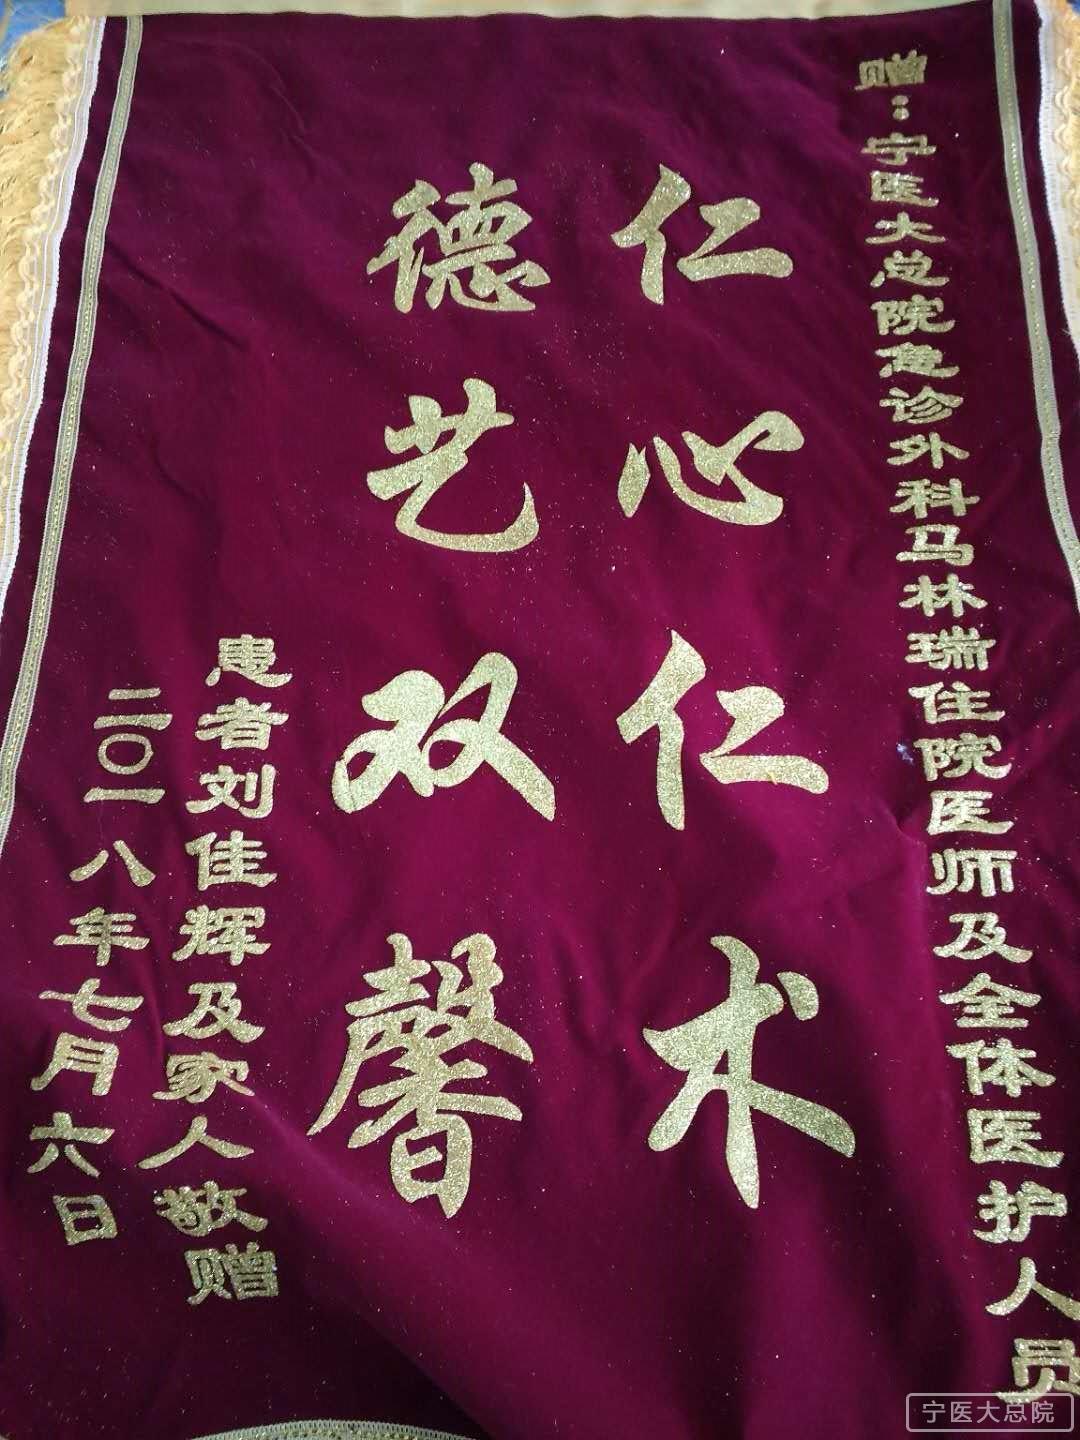 赠：宁医大总院急诊外科马林瑞住院医师及全体医护人员
仁心仁术
德艺双馨
患者刘佳辉及家人敬赠
二〇一八年七月六日
宁医大总院